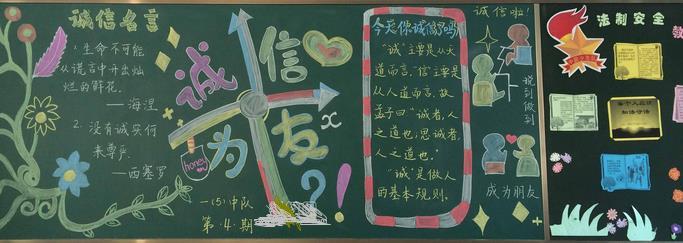 诚信名言
1. 生命不可能
从谎言中开出灿
烂的鲜花。
——海涅
2. 没有诚实何
来尊严。
——西塞罗
诚信
为友
x
?!
honey
一(5)中队
第·4·期
今天你诚信了吗?
“诚”主要是从天
道而言，“信”主要是
从人道而言，故
孟子曰“诚者，人
之道也；思诚者，
人之道也。”
“诚”是做人
的基本规则。
诚信啦!
说到做到
成为朋友
法制安全